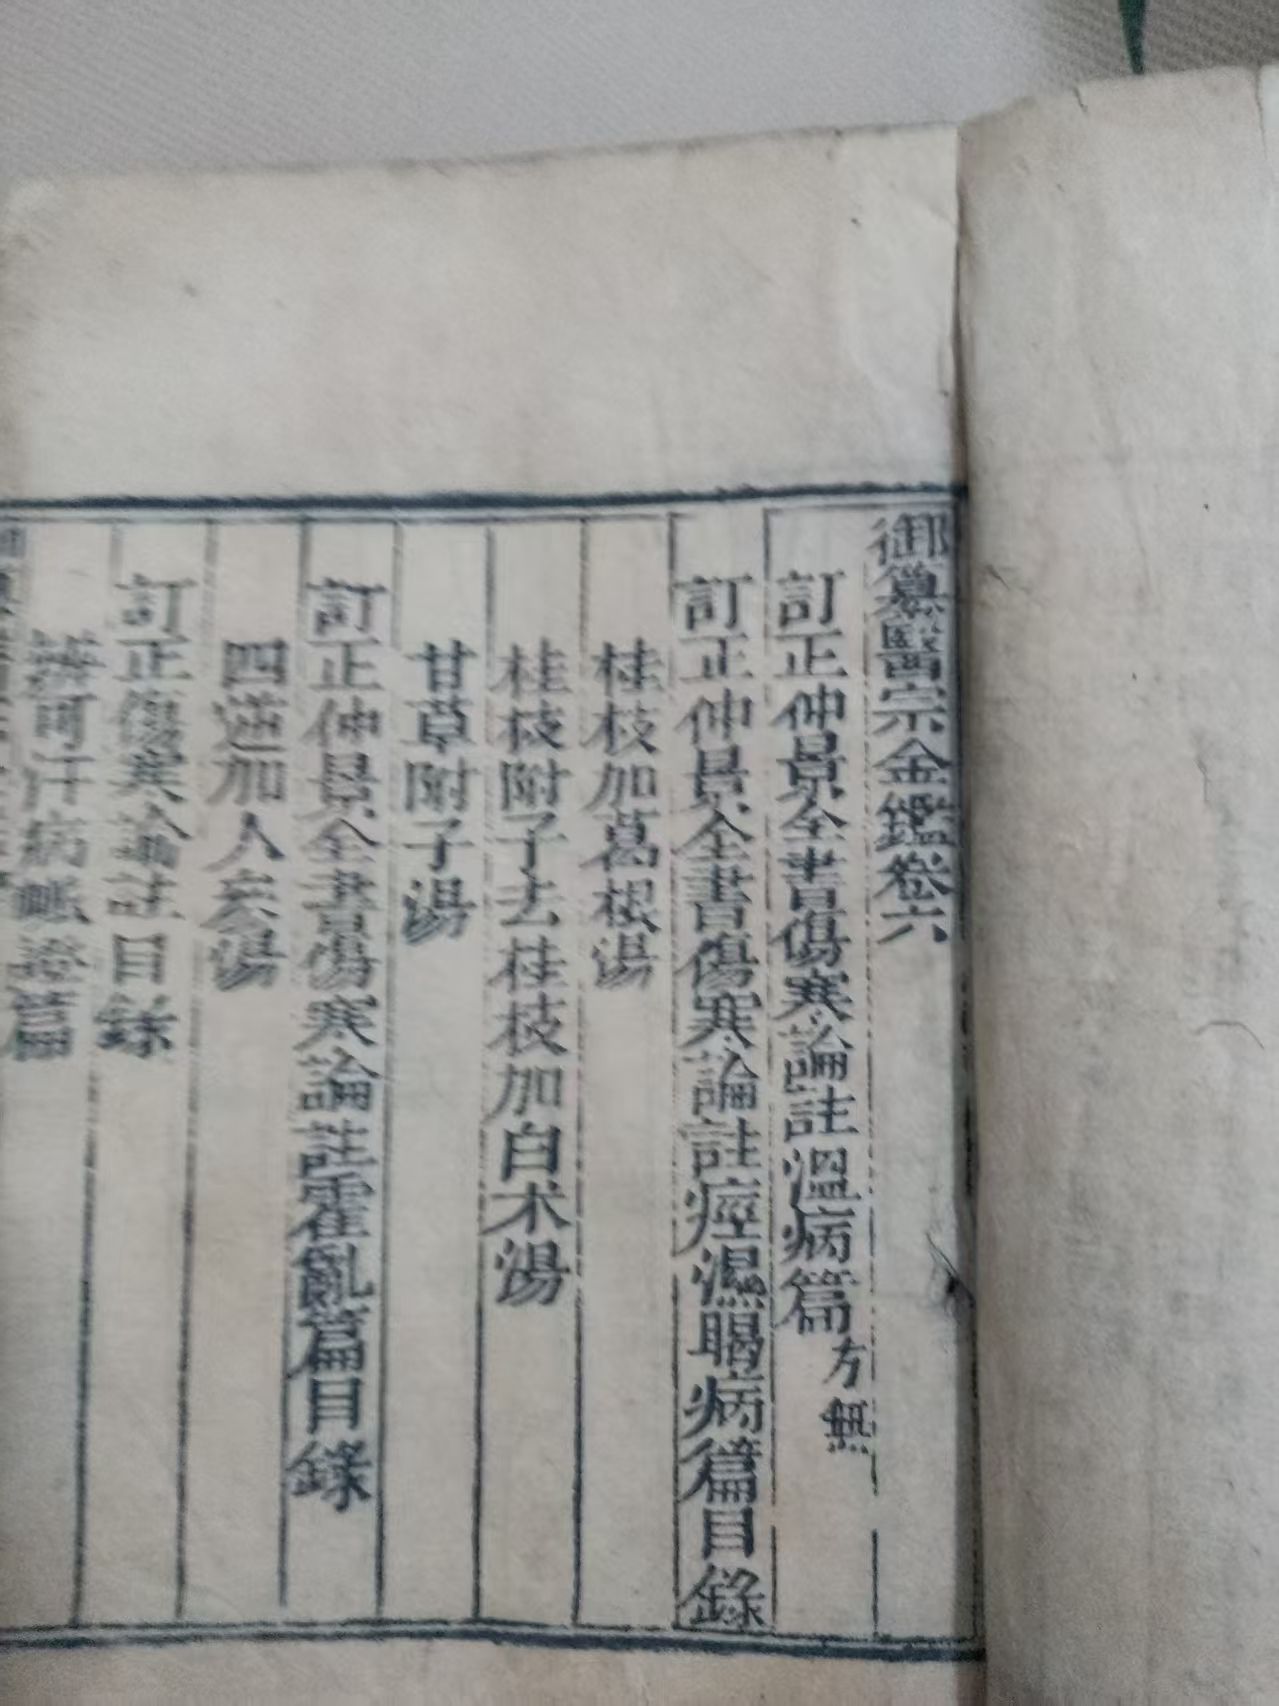 御纂醫宗金鑑卷六
訂正仲景全書傷寒論註溫病篇方無
訂正仲景全書傷寒論註痙濕暍病篇目錄
桂枝加葛根湯
桂枝附子去桂枝加白术湯
甘草附子湯
訂正仲景全書傷寒論註霍亂篇目錄
四逆加人𠫵湯
訂正傷寒論註目錄
辨可汗病脈證篇